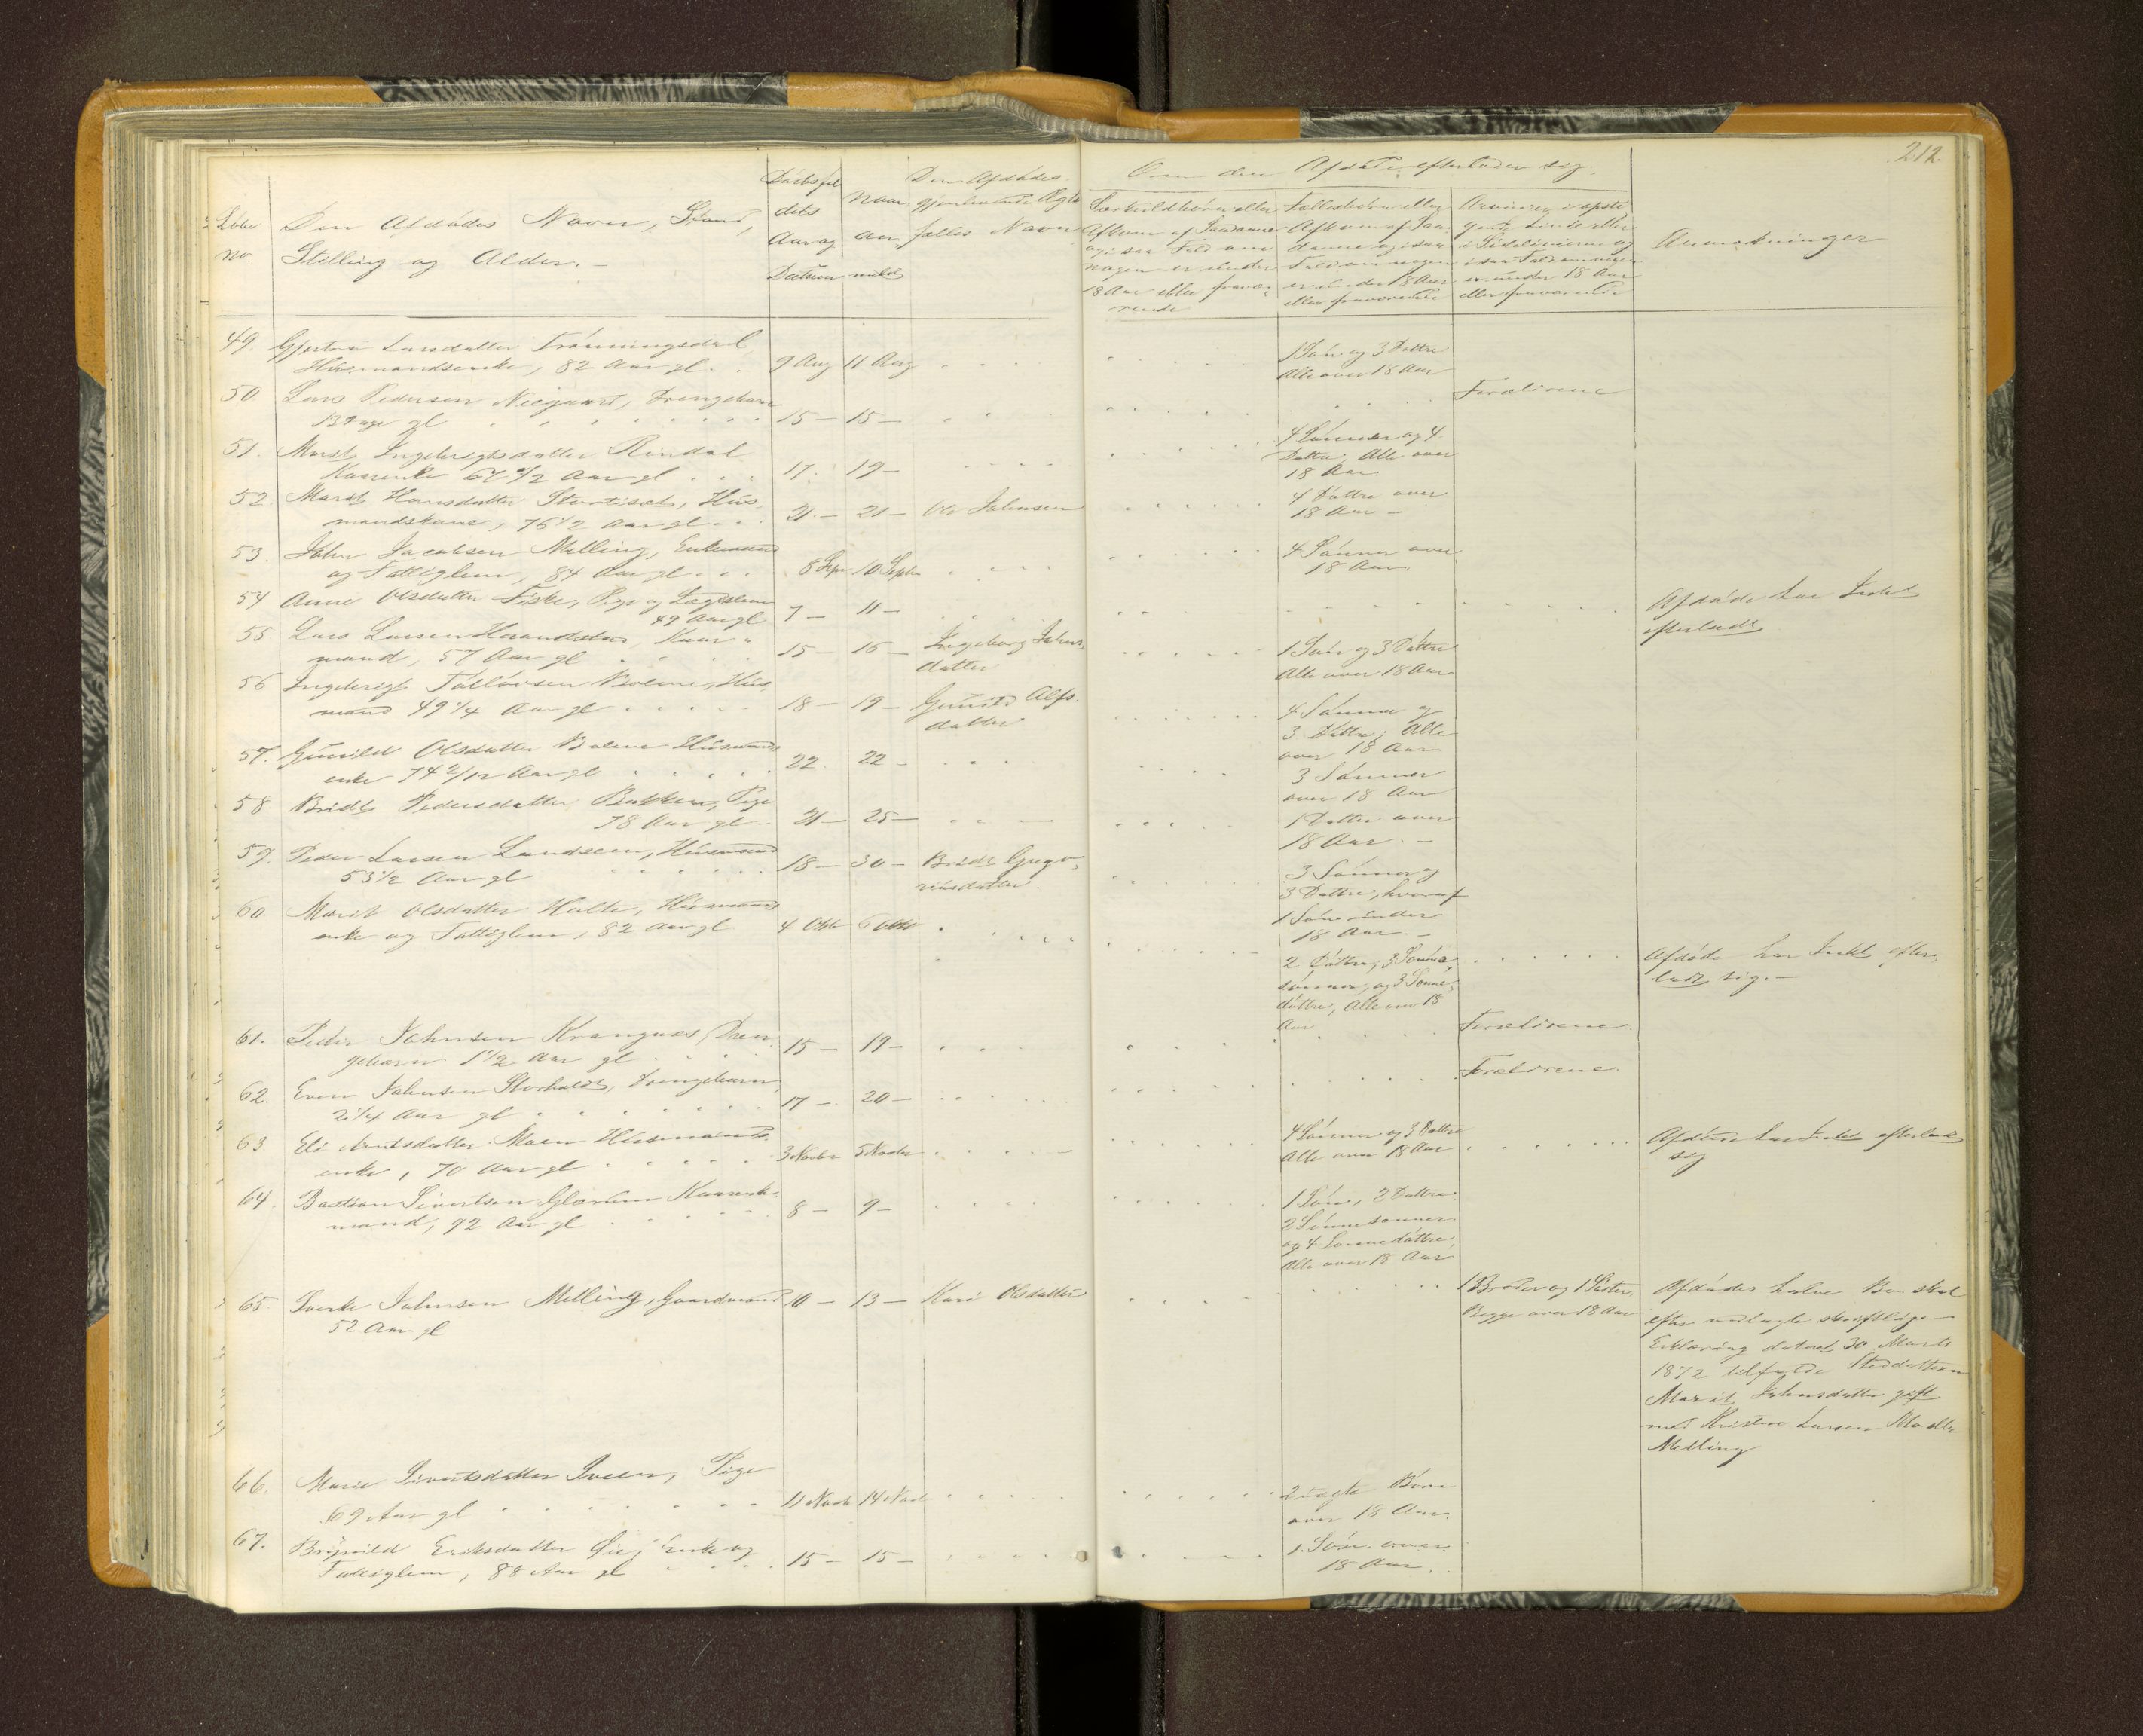 212.
Løbe
no.
Den Afdødes Navn, Stand,
Stilling og Alder. –
Dødsfal
dets
Aar og
Datum
Naar
an
meldt
Den Afdødes
gjenlevende Ægte
fælles Navn
Om den Afdøde efterlader sig.
Særkuldbørn eller
Afkom af Saadanne
og i saa Fald om
nogen er under
18 Aar eller fravæ-
rende
Fællesbørn eller
Afkom af Saa-
danne og i saa
Fald om nogen
er under 18 Aar
eller fraværende
Arvinger i opsti
gende Linie eller
i Sidelinierne og
i saa Fald om nogen
er under 18 Aar
eller fraværende
Anmærkninger
49 Larsdatter Trønningsdal
Husmandsenke, 82 Aar gl. 9 Aug 11 Aug
1 Søn og 3 Døttre
Alle over 18 Aar
50 Lars Pedersen Drengebarn
gl 15 – 15 –
Forældrene
51. Marit Ingebrigtsdatter Rindal
Kaarenke 67 1/2 Aar gl 17. 19 –
4 Sønner og 4
Døttre, Alle over
18 Aar
52. Marit Hansdatter Hus
mandskone, 76 1/2 Aar gl 21 – 21 – Ole Johnsen
4 Døttre over
18 Aar –
53. John Jacobsen Melling, Enkemand
og Fattiglem, 84 Aar gl 8 Sept 10 Septbr
4 Sønner over
18 Aar.
54 Anne Olsdatter Fiske, Pige og Lægdslem
49 Aar gl 7 – 11 –
Afdøde har Intet
efterladt
55. Lars Larsen Kaar-
mand, 57 Aar gl 15 – 16 – Ingeborg Johns
datter
1 Søn og 3 Døttre
Alle over 18 Aar
56 Ingebrigt Bolme, Hus
mand 49 1/4 Aar gl 18 – 19 – Gunild Alfs-
datter
4 Sønner og
3 Døttre, Alle
over 18 Aar
57. Gunild Olsdatter Bolme Husmands
enke 74 2/12 Aar gl 22. 22 –
3 Sønner
over 18 Aar
58 Bridt Pedersdatter Bakken, Pige
78 Aar gl 21 – 25 –
1 Datter over
18 Aar. –
59. Peder Larsen Husmand
53 1/2 Aar gl 18 – 30 – Bridt Grego-
riusdatter.
3 Sønner og
3 Døttre, hvoraf
1 Søn under
18 Aar. –
60 Marit Olsdatter Holte, Husmands
enke og Fattiglem, 82 Aar gl 4 Oktb 6 Oktb
2 Døttre, 3 Sønne
sønner, og 3 Sønne
døttre, Alle over 18
Aar
Afdøde har Intet efter-
ladt sig. –
61. Peder Johnsen Krangnæs, Dren-
gebarn 1 1/2 Aar gl 15 – 19 –
Forældrene.
62. Even Johnsen Drengebarn
2 1/4 Aar gl 17 – 20 –
Forældrene.
63 Eli Arntsdatter Moen Husmands
enke, 70 Aar gl 3 Novbr 5 Novbr
4 Sønner og 3 Døttre
Alle over 18 Aar
Afdøde har Intet efterladt
sig
64. Bastian Sivertsen Glærum Kaarenke-
mand, 92 Aar gl 8 – 9 –
1 Søn, 2 Døttre
2 Sønnesønner
og 4 Sønnedøttre,
Alle over 18 Aar
65. Sverke Johnsen Melling, Gaardmand 10 – 13 – Kari Olsdatter
52 Aar gl
1 Broder og 1 Søster
Begge over 18 Aar
Afdødes halve Bo skal
efter modtagte skriftlige
Erklæring dateret 30 Marts
1872 tilfalde Steddatteren
Marit Johnsdatter gift
med Kristen Larsen
Melling
66. Marit Sivertsdatter Sveen, Pige
69 Aar gl 11 Novb 14 Novb
2 uægte Børn
over 18 Aar.
67. Brynild Eriksdatter Øie, Enke og
Fattiglem, 88 Aar gl 15 – 15 –
1. Søn over
18 Aar.